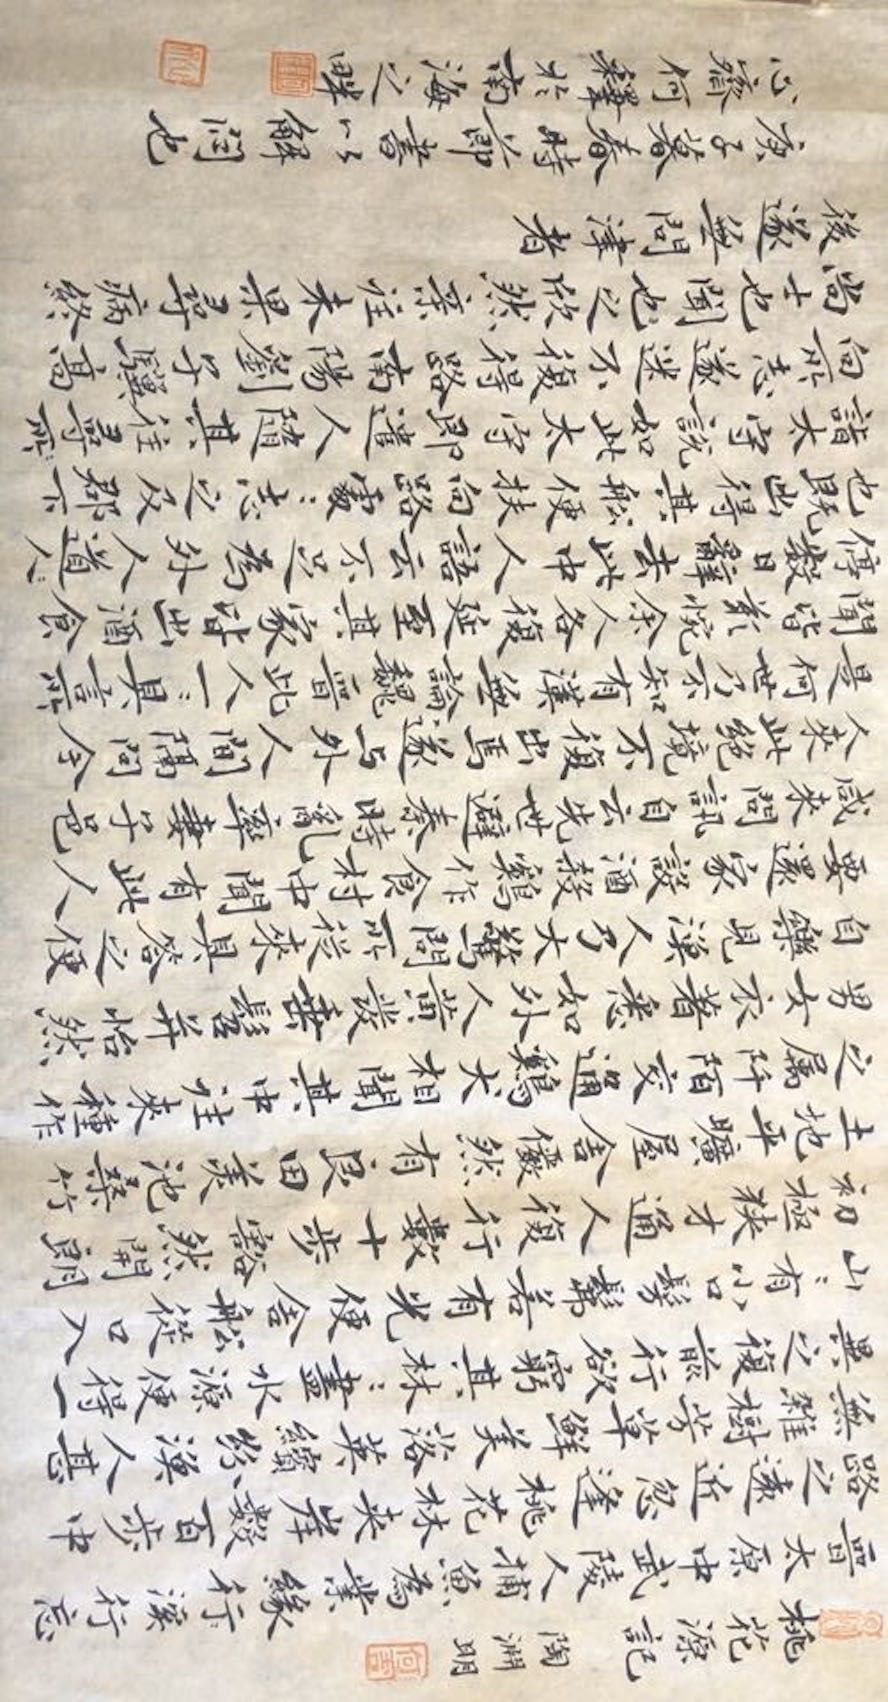 桃花源記 陶淵明
晉太原中武陵人捕魚為業緣行溪行忘
路之遠近忽逢桃花林夾岸數百步中
無雜樹芳草鮮美落英繽紛漁人甚
異之復前行欲窮其林〻盡水源便得一
山〻有小口髣髴若有光便舍船從口入
初極狹才通人復行數十步豁然開朗
土地平曠屋舍儼然有良田美池桑竹
之屬阡陌交通鷄犬相聞其中往來種作
男女衣著悉如外人黃髮垂髫並怡然
自樂見漁人乃大驚問所從來具答之便
要還家設酒殺鷄作食村中聞有此人
咸來問訊自云先世避秦時亂率妻子邑
人來此絕境不復出焉遂与外人間隔問今
是何世乃不知有漢無論魏晉此人一〻具言所
聞皆歎惋余人各復延至其家皆出酒食
停數日辭去此中人語云不足為外人道人
也既出得其船便扶向路處〻志之及郡下
詣太守說如此太守即遣人隨其往尋所
向所志遂迷不復得路南陽劉子驥高
尚士也聞也之欣然親往未果尋病終
後遂無問津者
庚子暮春時節書以解悶也
心齋何釋於南海之畔